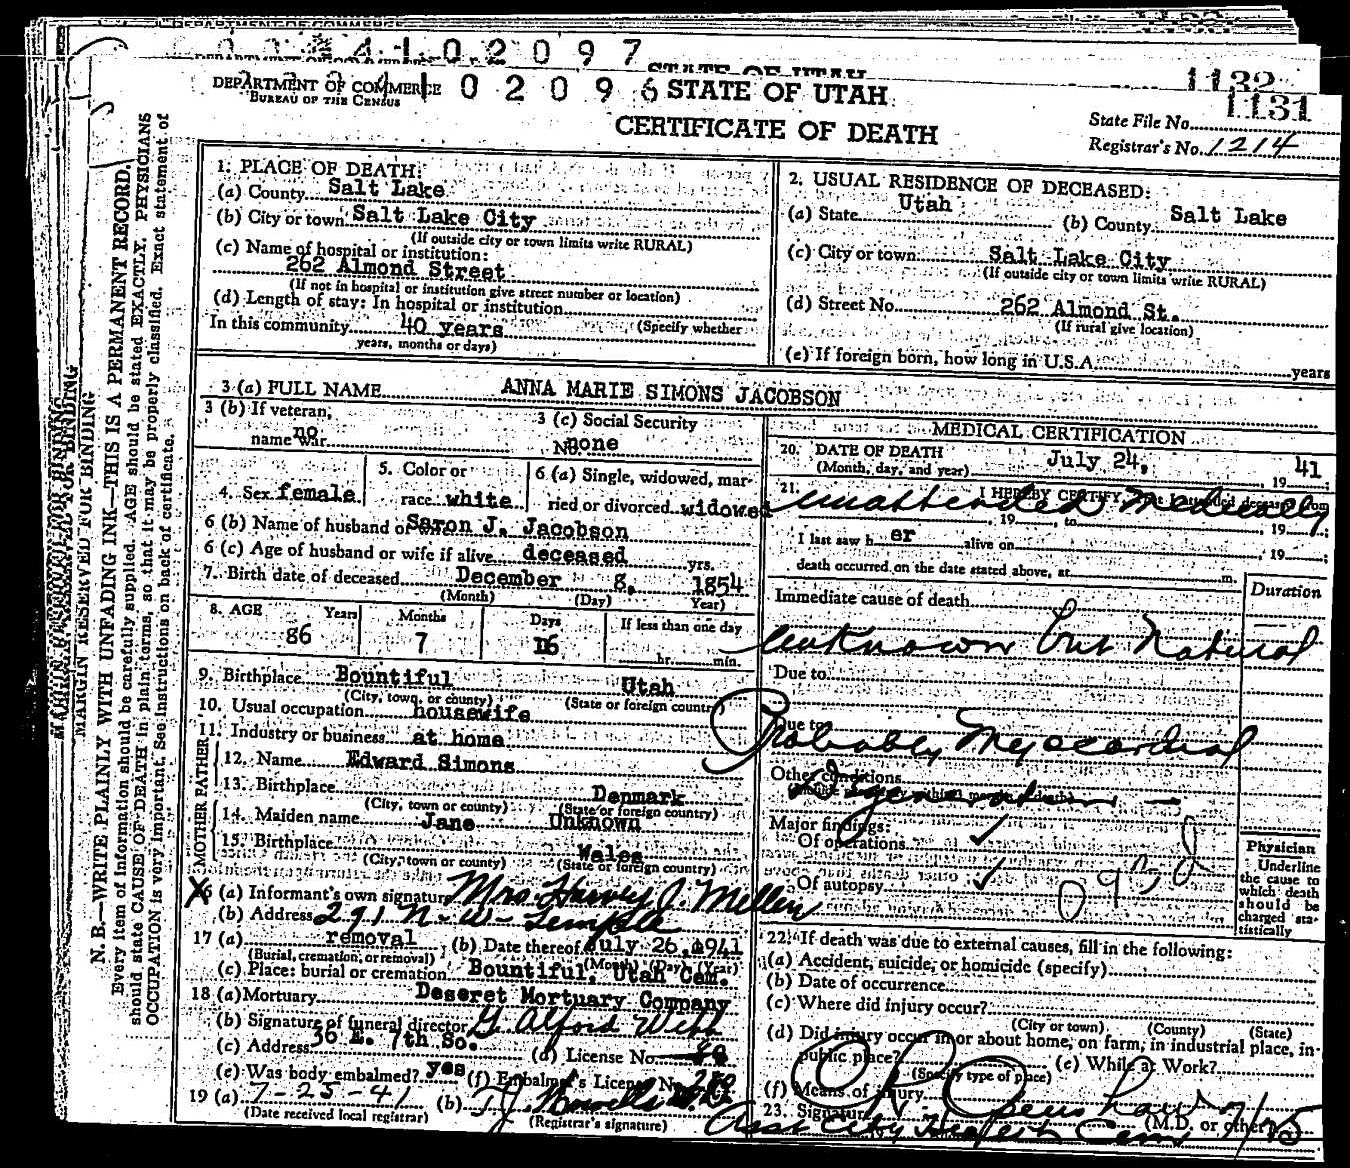 2 4 1 0 2 0 9 7
STATE OF UTAH
1132
DEPARTMENT OF COMMERCE
BUREAU OF THE CENSUS
1 0 2 0 9 6
STATE OF UTAH
CERTIFICATE OF DEATH
1131
State File No.
Registrar's No. 1214
MARGIN RESERVED FOR BINDING
N. B.—WRITE PLAINLY WITH UNFADING INK—THIS IS A PERMANENT RECORD.
Every item of information should be carefully supplied. AGE should be stated EXACTLY. PHYSICIANS
should state CAUSE OF DEATH in plain terms, so that it may be properly classified. Exact statement of
OCCUPATION is very important. See instructions on back of certificate.
1. PLACE OF DEATH:
(a) County Salt Lake
(b) City or town Salt Lake City
(If outside city or town limits write RURAL)
(c) Name of hospital or institution:
262 Almond Street
(If not in hospital or institution give street number or location)
(d) Length of stay: In hospital or institution
In this community 40 years (Specify whether
years, months or days)
2. USUAL RESIDENCE OF DECEASED:
(a) State Utah (b) County Salt Lake
(c) City or town Salt Lake City
(If outside city or town limits write RURAL)
(d) Street No. 262 Almond St.
(If rural give location)
(e) If foreign born, how long in U.S.A. years
3 (a) FULL NAME ANNA MARIE SIMONS JACOBSON
3 (b) If veteran,
name war no
3 (c) Social Security
No. none
4. Sex female
5. Color or
race white
6 (a) Single, widowed, mar-
ried or divorced widowed
6 (b) Name of husband or wife J. Jacobson
6 (c) Age of husband or wife if alive deceased yrs.
7. Birth date of deceased December 8, 1854
(Month) (Day) Year)
8. AGE Years Months Days If less than one day
86 7 16 hr. min.
9. Birthplace Bountiful Utah
(City, town, or county) (State or foreign country)
10. Usual occupation housewife
11. Industry or business at home
FATHER
12. Name Edward Simons
13. Birthplace Denmark
(City, town or county) (State or foreign country)
MOTHER
14. Maiden name Jane Unknown
15. Birthplace Wales
(City, town or county) (State or foreign country)
X 16 (a) Informant's own signature Mrs. Harvey J. Mellen
(b) Address 291 N. W. Temple
17 (a) removal (b) Date thereof July 26, 1941
(Burial, cremation, or removal) (Month) (Day) (Year)
(c) Place: burial or cremation Bountiful, Utah Cem.
18 (a) Mortuary Deseret Mortuary Company
(b) Signature of funeral director G. Alford Webb
(c) Address 36 E. 7th So. (d) License No.
(e) Was body embalmed? yes (f) Embalmer's License No.
19 (a) 7-25-41 (b) T. J. Howells
(Date received local registrar) (Registrar's signature)
MEDICAL CERTIFICATION
20. DATE OF DEATH
(Month, day, and year) July 24, 19 41
21. I HEREBY CERTIFY, That I attended deceased from
unattended Medically
, 19 , to , 19 ;
I last saw h er alive on , 19 ;
death occurred on the date stated above, at m.
Immediate cause of death Duration
Unknown but Natural
Due to
Due to
Probably Myocardial
Other conditions
Degeneration —
Major findings:
Of operations ✓
Of autopsy ✓
Physician
Underline
the cause to
which death
should be
charged sta-
tistically
22. If death was due to external causes, fill in the following:
(a) Accident, suicide, or homicide (specify)
(b) Date of occurrence
(c) Where did injury occur?
(City or town) (County) (State)
(d) Did injury occur in or about home, on farm, in industrial place, in
public place? (e) While at Work?
(Specify type of place)
(f) Means of injury
23. Signature (M.D. or other)
Asst City Health Com 7/25